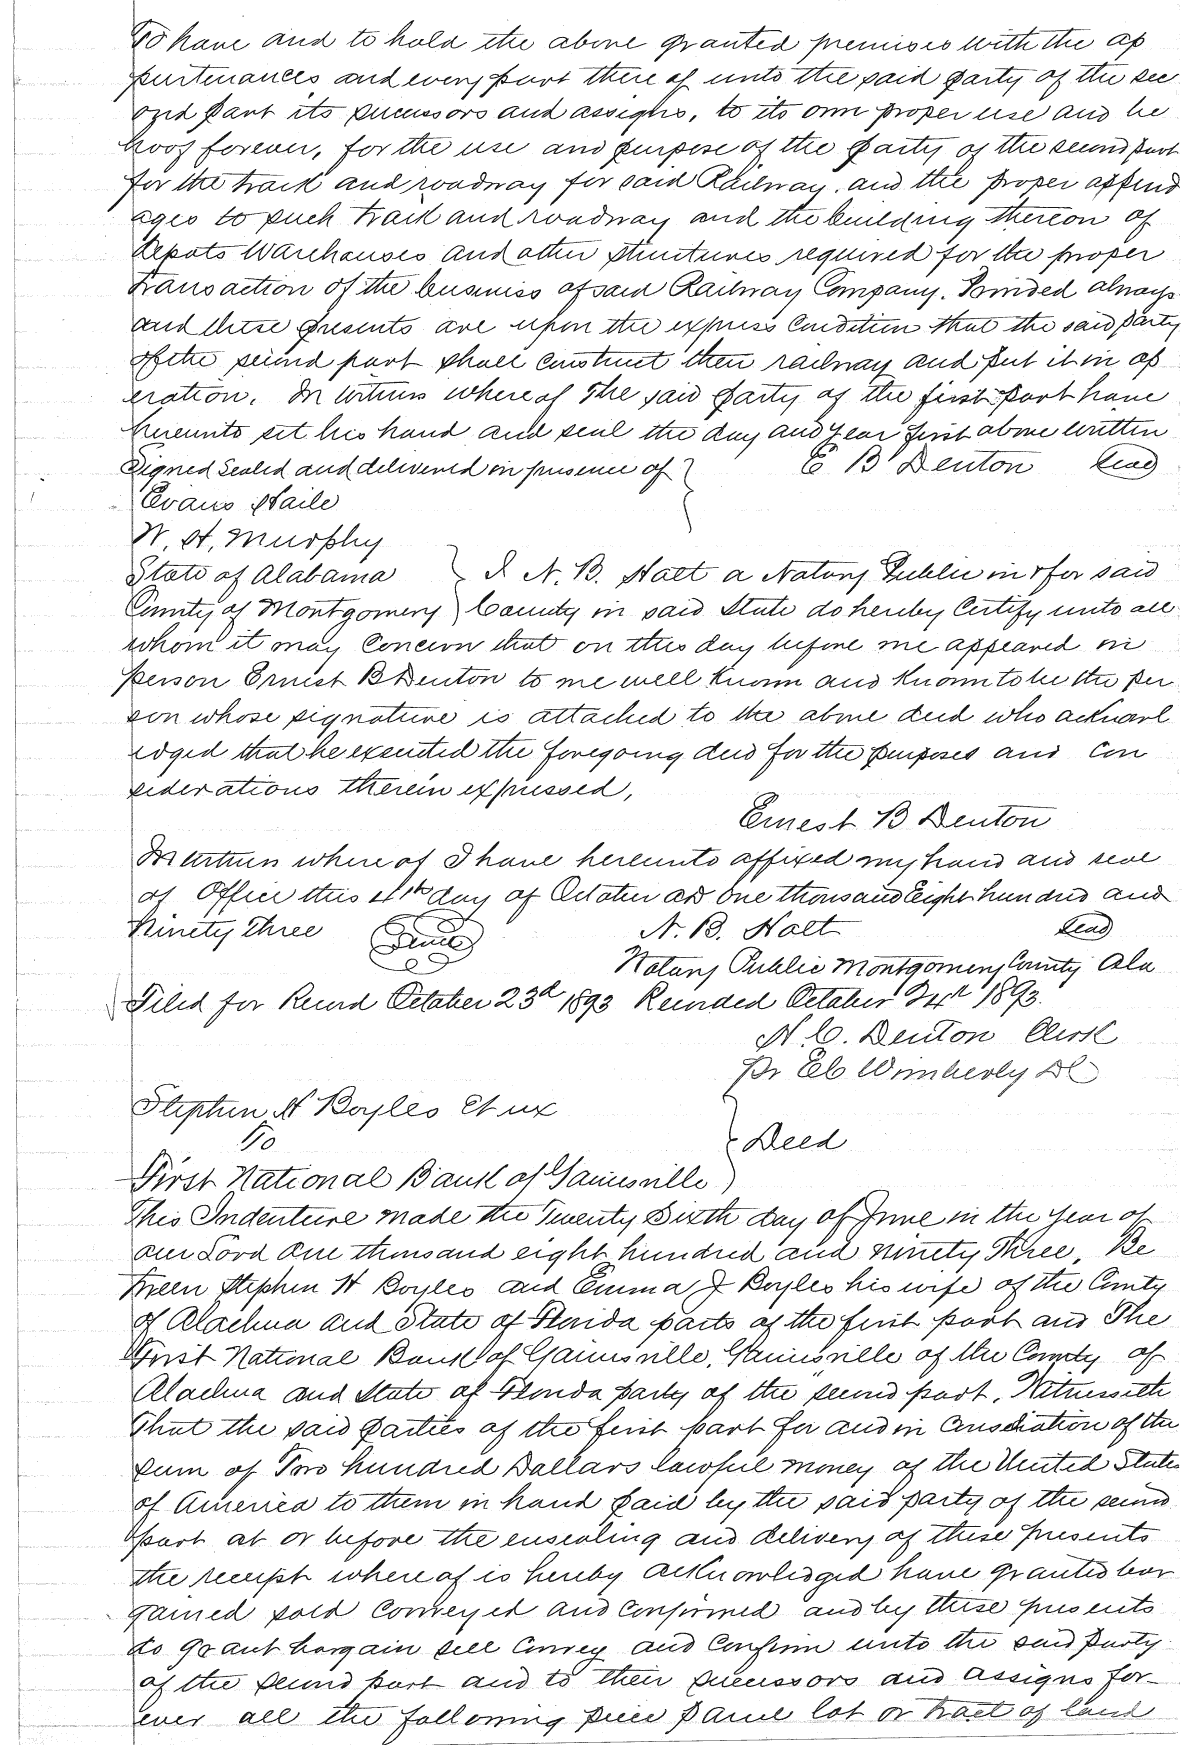 To have and to hold the above granted premises with the ap
purtenances and every part there of unto the said party of the sec
ond part its successors and assigns, to its own proper use and be
hoof forever, for the use and purpose of the party of the second part
for the track and roadway for said Railway, and the proper append
ages to such track and roadway and the building thereon of
depots Warehouses and other structures required for the proper
transaction of the business of said Railway Company. Provided always
and these presents are upon the express condition that the said party
of the second part shall construct their railway and put it in op
eration. In Witness where of The said party of the first part have
hereunto set his hand and seal the day and year first above written
Signed Sealed and delivered in presence of } E B Denton Seal
Evans Haile
W. H. Murphy
State of Alabama } I N. B. Holt a Notary Public in & for said
County of Montgomery } County in said State do hereby Certify unto all
whom it may Concern that on this day before me appeared in
person Ernest B Denton to me well known and known to be the per
son whose signature is attached to the above deed who acknowl
edged that he executed the foregoing deed for the purposes and con
siderations therein expressed,
Ernest B Denton
In witness where of I have hereunto affixed my hand and seal
of Office this 4th day of October AD one thousand Eight hundred and
Ninety Three Seal N. B. Holt Seal
Notary Public Montgomery County Ala
Filed for Record October 23d 1893 Recorded October 24th 1893.
N. C. Denton Clerk
Pr Wimberly DC
Stephen H Boyles Et ux
To } Deed
First National Bank of Gainesville
This Indenture made the Twenty Sixth day of June in the year of
our Lord One thousand eight hundred and ninety Three, Be
tween Stephen H Boyles and Emma J Boyles his wife of the County
of Alachua and State of Florida parts of the first part and The
First National Bank of Gainesville, Gainesville of the County of
Alachua and State of Florida party of the second part. Witnesseth
That the said parties of the first part for and in Consdiration of the
sum of Two hundred Dollars lawful money of the United States
of America to them in hand paid by the said party of the second
part at or before the ensealing and delivery of these presents
the receipt where of is hereby acknowledged have granted bar
gained sold conveyed and confirmed and by these presents
do grant bargain sell convey and confirm unto the said party
of the second part and to their successors and assigns for-
ever all the following piece parcel lot or tract of land